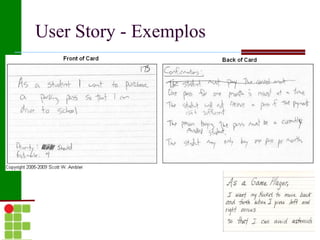 User Story - Exemplos
Front of Card
173
As a student I want to purchase
a parking pass so that I can
drive to school
Priority: Should
Estimate: 4
Back of Card
Confirmations:
The student must pay the correct amt
One pass for one month is issued at a time
The student will not receive a pass if the payment
isn't sufficient
The person buying the pass must be a currently
enrolled student.
The student may only buy one pass per month
Copyright 2005-2009 Scott W. Ambler
As a Game Player,
I want my Rocket to move back
and forth when I press left and
right arrows
so that I can avoid asteroids